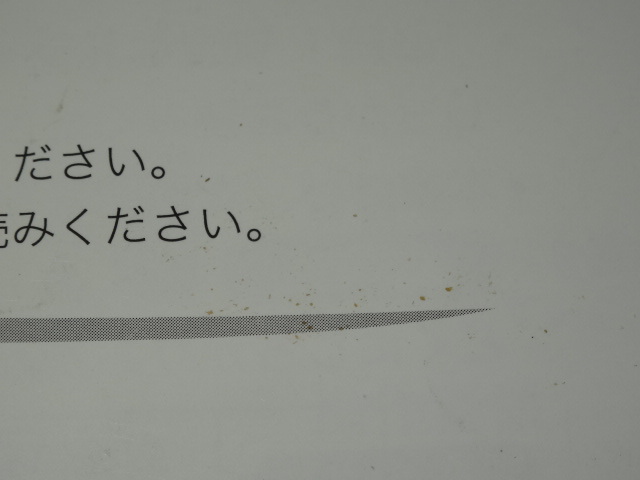 ださい。
読みください。